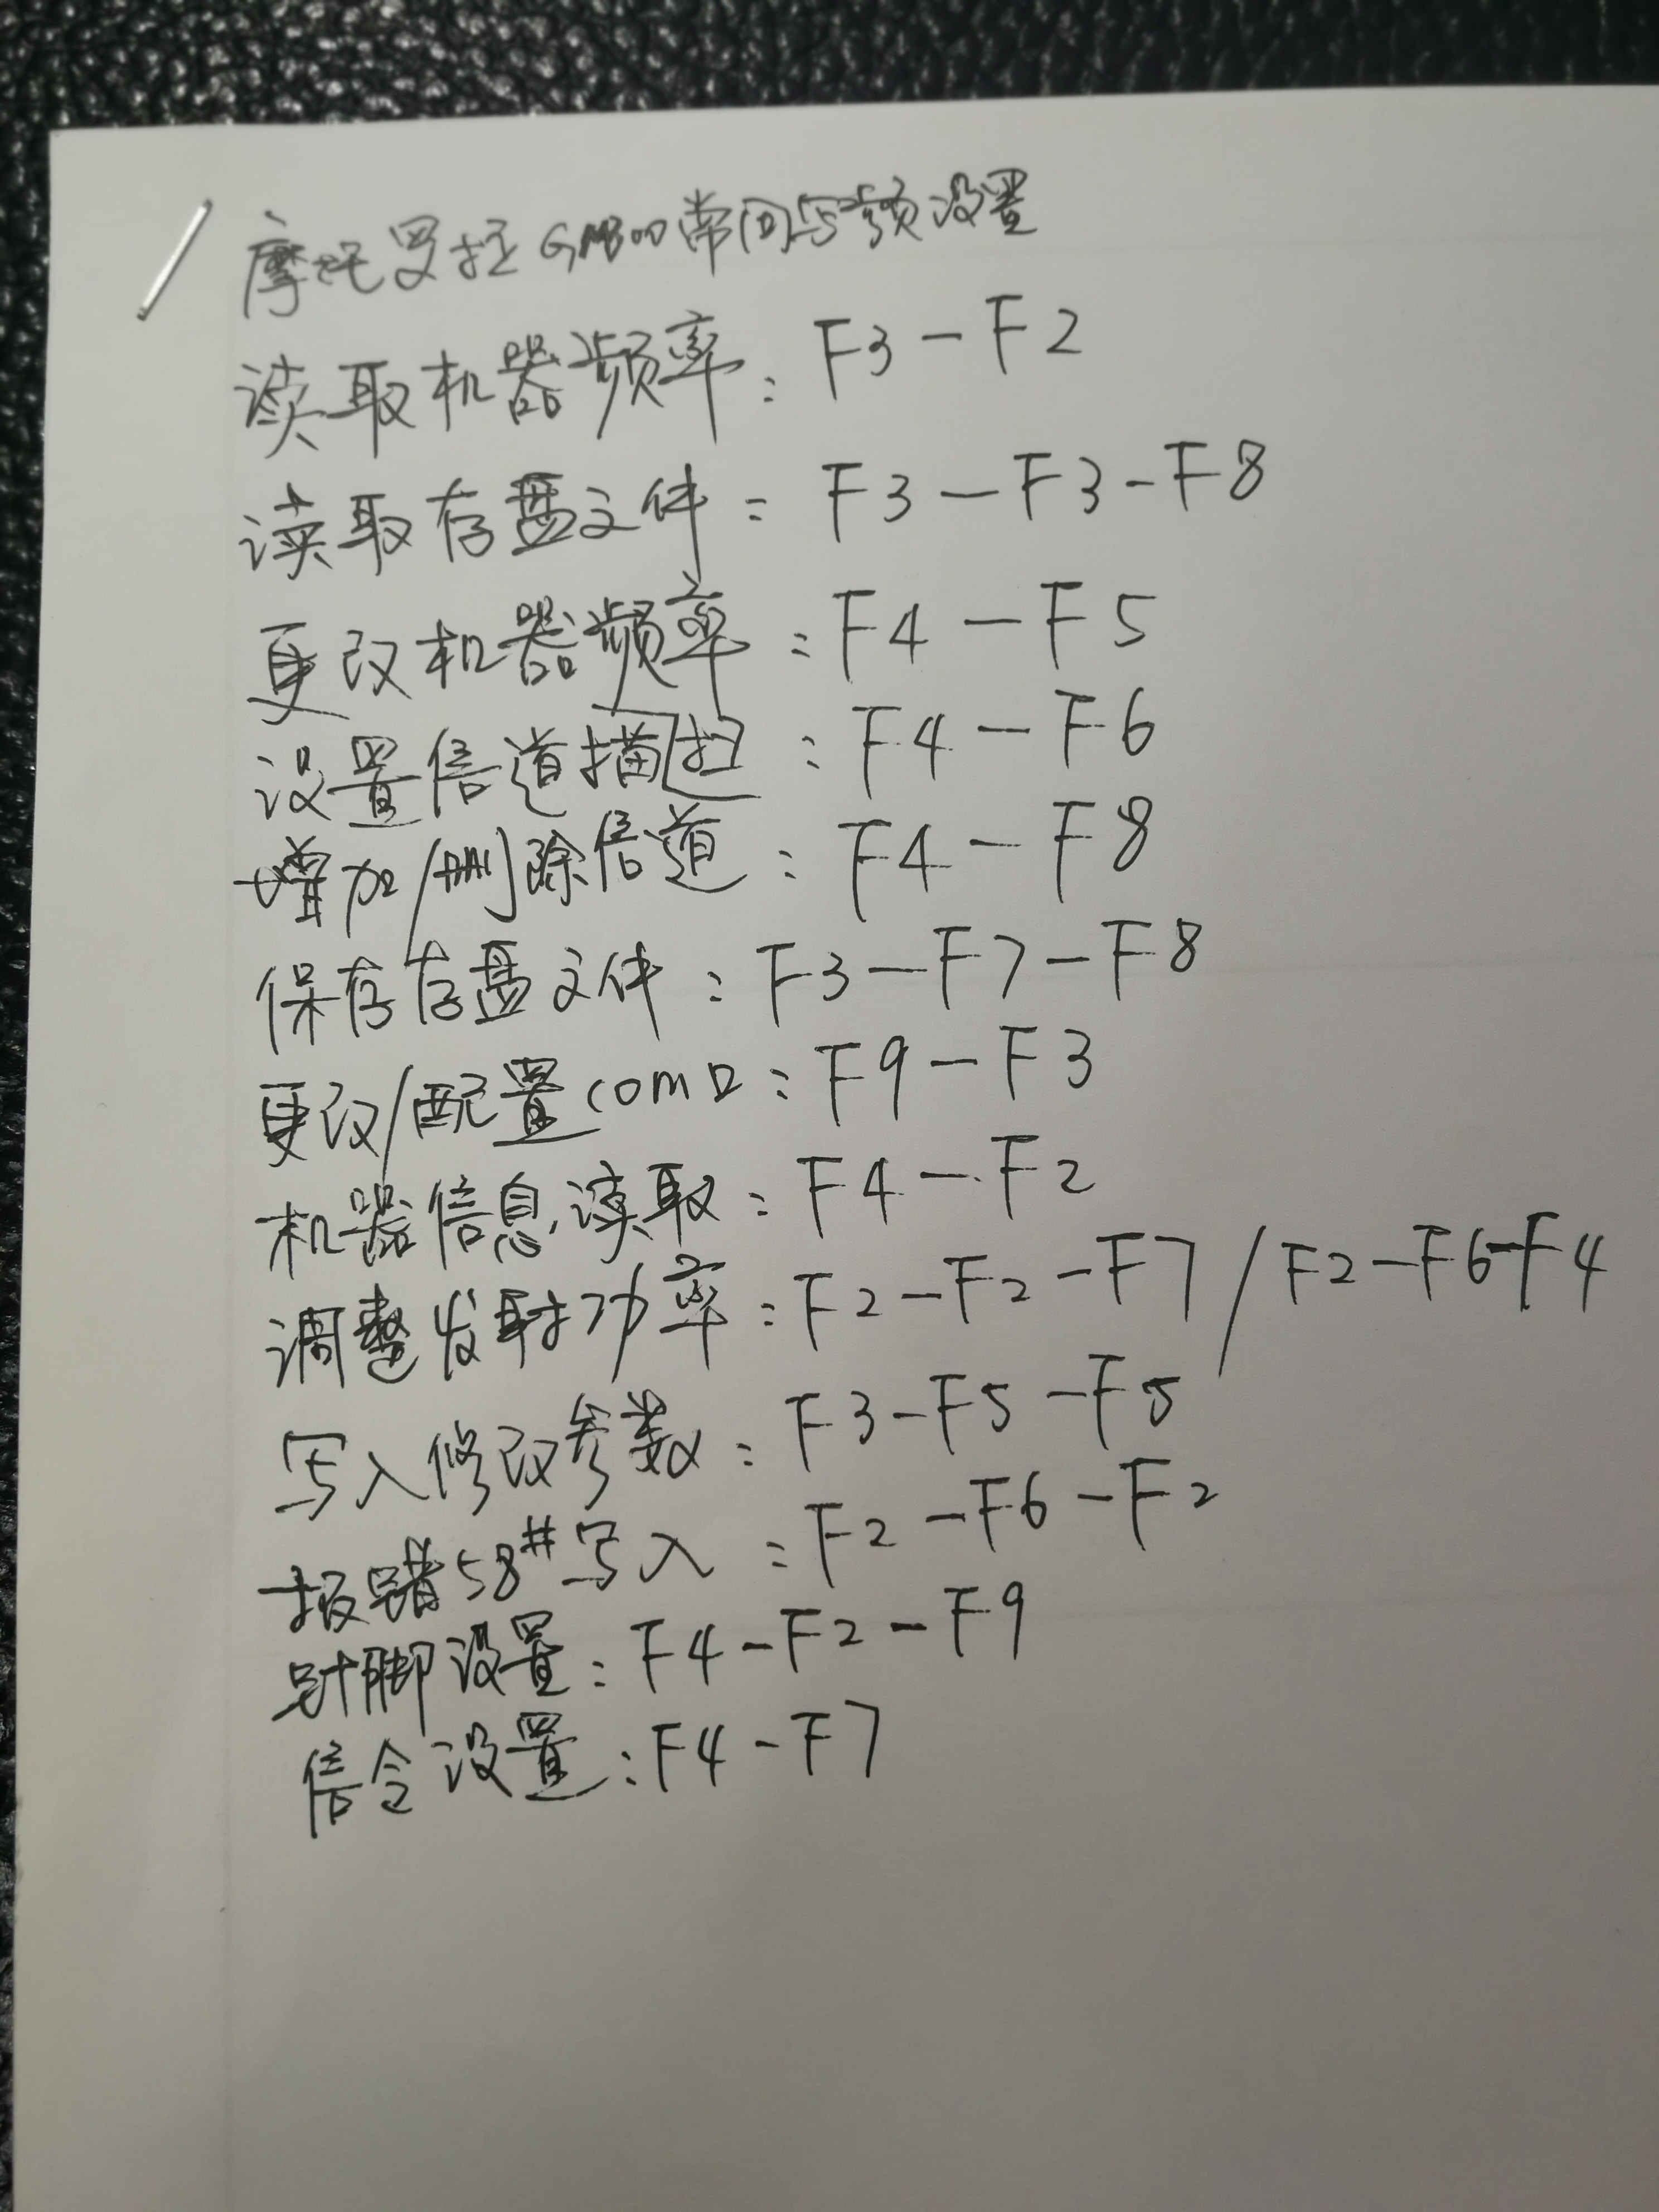 摩托罗拉GM300常问写频设置
读取机器频率：F3－F2
读取存盘文件：F3－F3－F8
更改机器频率：F4－F5
设置信道描扫：F4－F6
增加/删除信道：F4－F8
保存存盘文件：F3－F7－F8
更改/配置com口：F9－F3
机器信息读取：F4－F2
调整发射功率：F2－F2－F7/F2－F6－F4
写入修改参数：F3－F5－F5
报错58#写入：F2－F6－F2
针脚设置：F4－F2－F9
信令设置：F4－F7